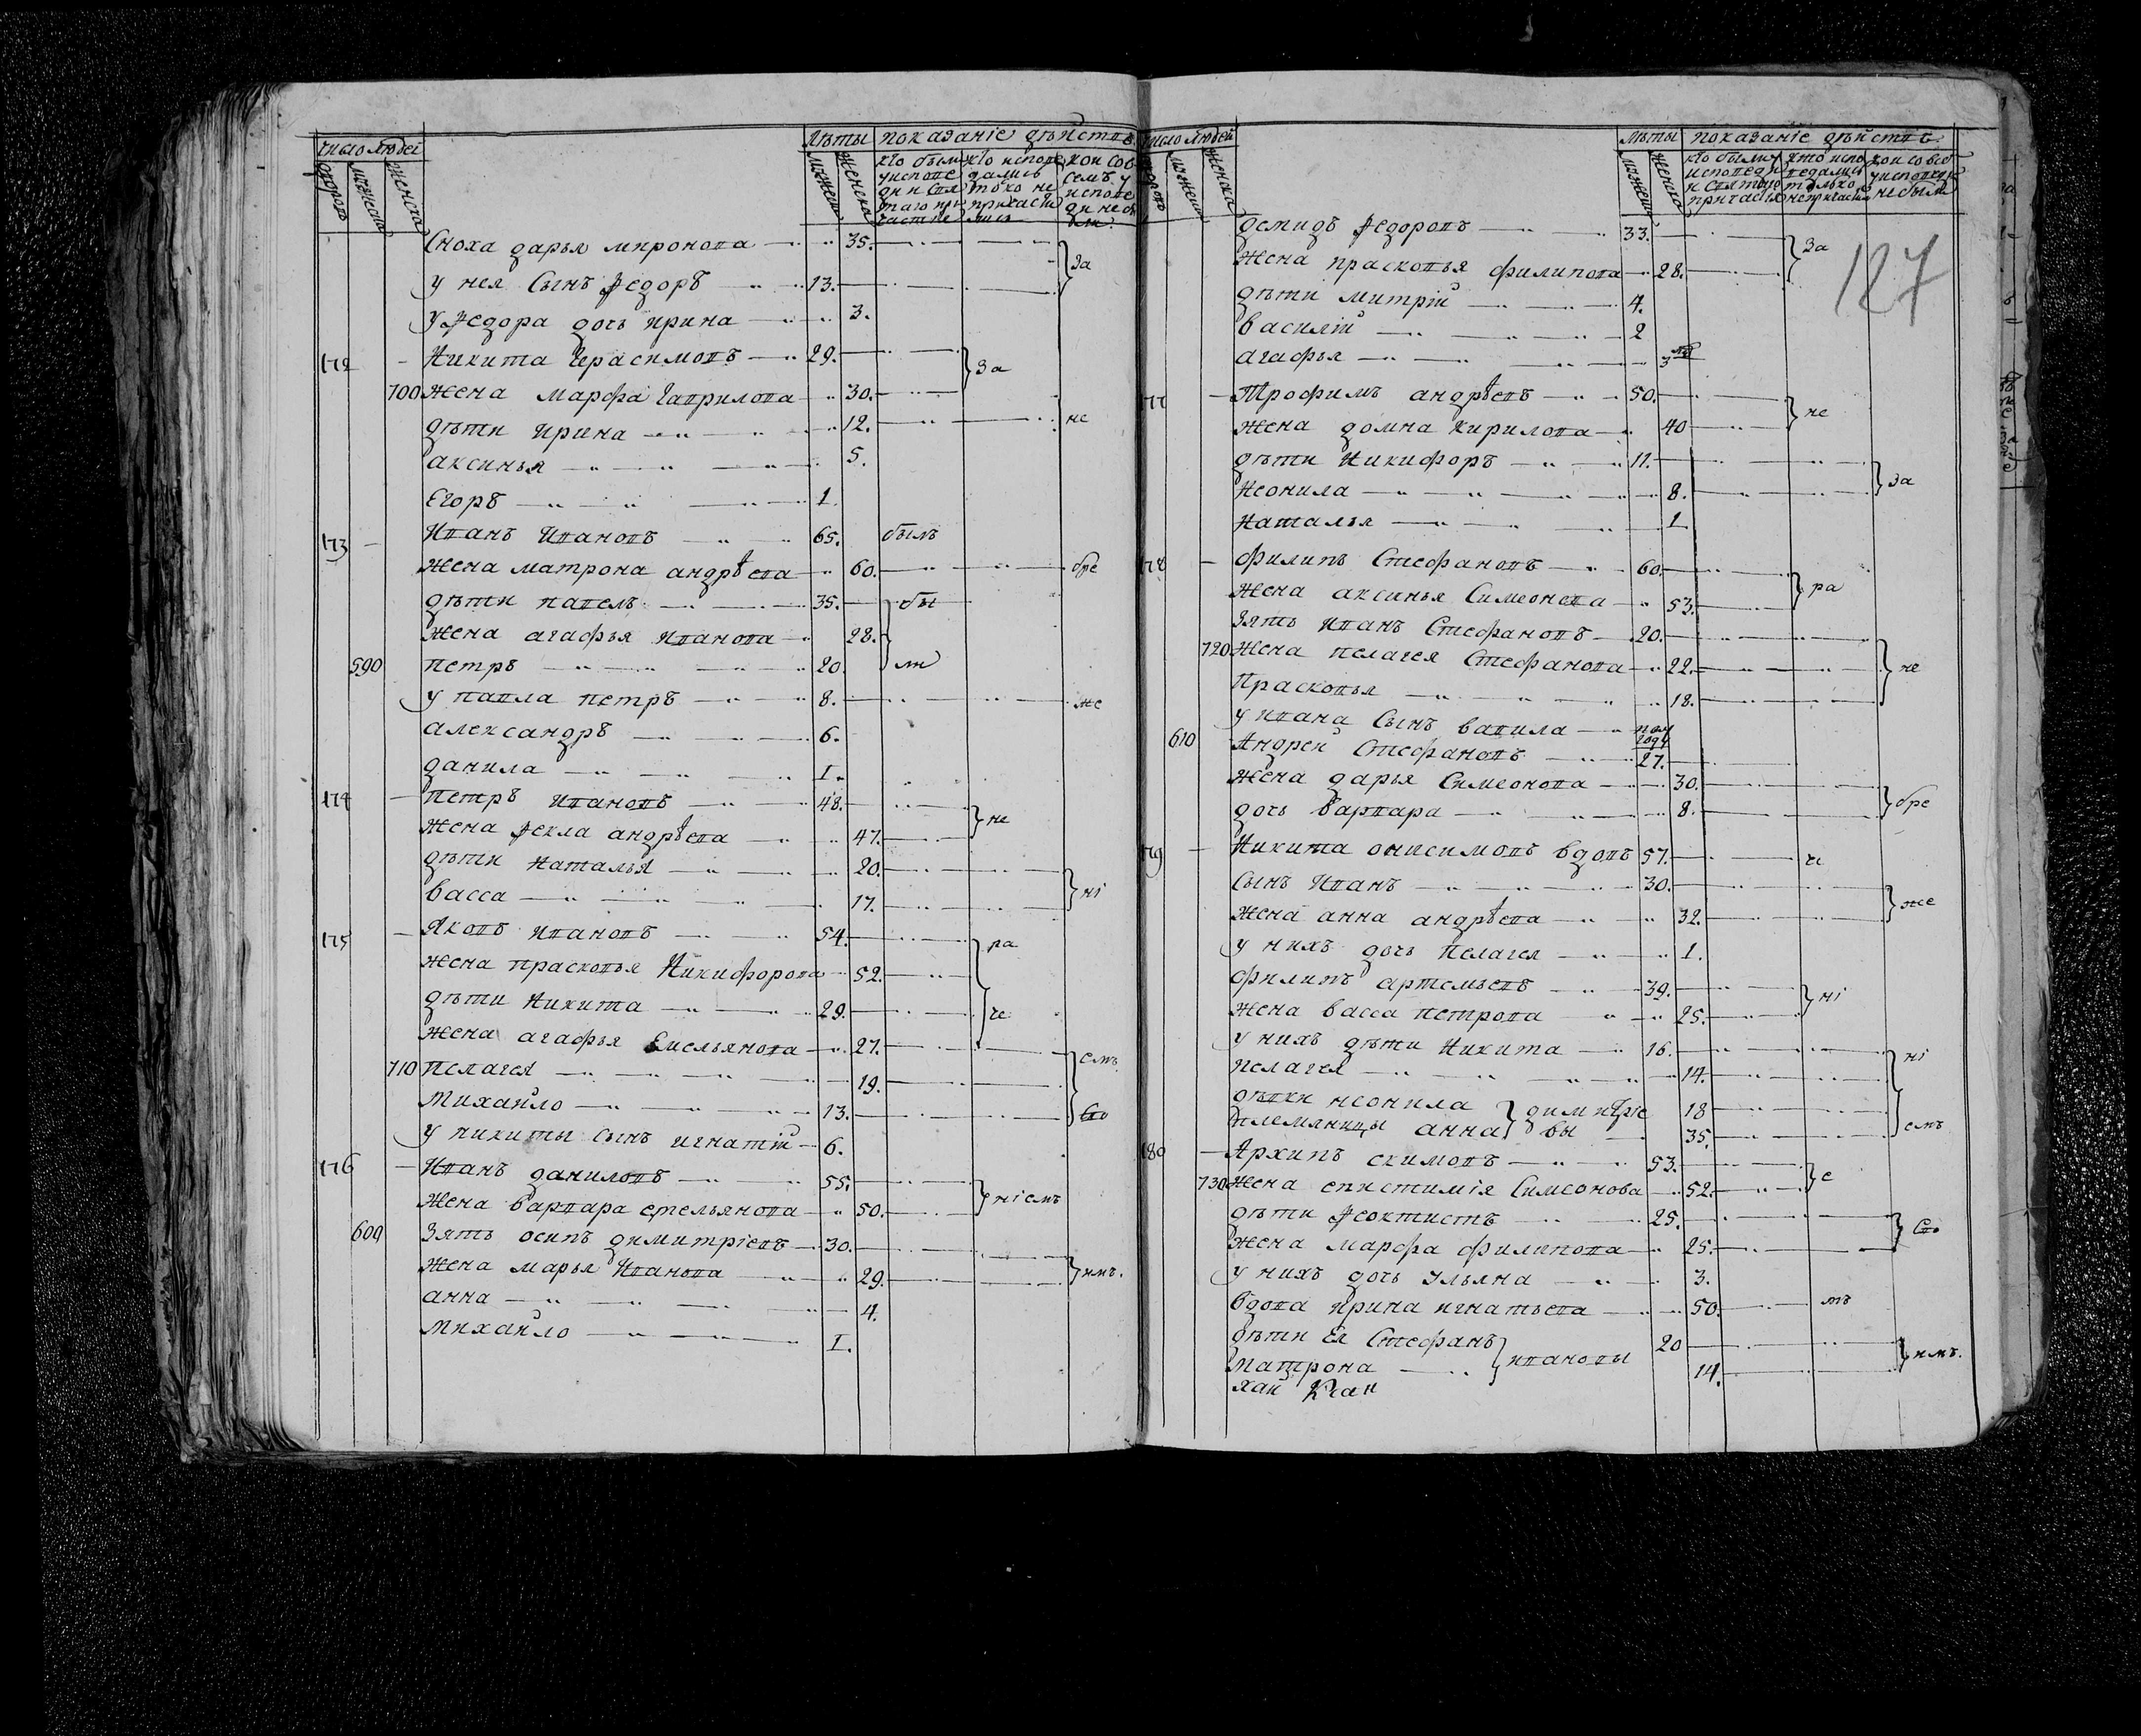 число людей
дворовъ мужеска женска
лѣты
мужеска женска
показанiе дѣйствъ
кто были у исповеди и святаго причастiя
кто исповедались токо не причастились
кои со всемъ у исповеди не были
Сноха дарья миронова 35.
За
у нея Сынъ Ѳедоръ 13.
у Ѳедора дочь ирина 3.
172 Никита Герасимовъ 29.
За
700 жена марфа Гаврилова 30.
дѣти ирина 12. не
аксинья 5.
Егоръ 1.
173 Иванъ Ивановъ 65. былъ
жена матрона андрѣева 60. бре
дѣти павелъ 35. бы
жена агафья иванова 28.
590 петръ 20. ли
у павла петръ 8. же
александръ 6.
данила 1.
174 петръ ивановъ 48.
не
жена Ѳекла андрѣева 47.
дѣти наталья 20.
нi
васса 17.
175 Яковъ ивановъ 54.
ра
жена прасковья Никифорова 52.
дѣти никита 29. че
жена агафья Емельянова 27.
емъ
710 пелагея 19.
михайло 13. Сво
у никиты сынъ игнатiй 6.
176 Иванъ даниловъ 55.
нiемъ
жена варвара емельянова 50.
600 Зять осипъ димитрiевъ 30.
имъ.
жена марья иванова 29.
анна 4.
михайло 1.
число людей
дворовъ мужеска женска
лѣты
мужеска женска
показанiе дѣйствъ
кто были у исповеди и святаго причастiя
кто исповедались только не причастились
кои со всемъ у исповеди не были
127
демидъ Ѳедоровъ 33.
За
жена прасковья филипова 28.
дѣти митрiй 4.
василiй 2
агафья 3
177 Трофимъ андрѣевъ 50.
не
жена домна кирилова 40
дѣти Никифоръ 11.
За
неонила 8.
наталья 1
178 филипъ Стефановъ 60.
ра
жена аксинья Симеонова 53.
Зять иванъ Стефановъ 20.
720 жена пелагея Стефанова 22.
не
Прасковья 18.
у ивана Сынъ вавила пол году
610 Андрей Стефановъ 27.
жена дарья Симеонова 30.
бре
дочь варвара 8.
179 Никита онисимовъ вдовъ 57. че
сынъ иванъ 30.
же
жена анна андрѣева 32.
у нихъ дочь пелагея 1.
филипъ артемьевъ 39.
нi
жена васса петрова 25.
у нихъ дѣти никита 16.
нi
пелагея 14.
девки неонила димитрiе 18
племяницы анна вы 35. емъ
180 Архипъ екимовъ 53.
е
730 жена епистимiя Симеонова 52.
дѣти Ѳеоктистъ 25.
Сво
жена марфа филипова 25.
у нихъ дочь ульяна 3.
вдова ирина игнатьева 50. мъ
дѣти Ея Стефанъ 20
ивановы
имъ.
матрона 14.